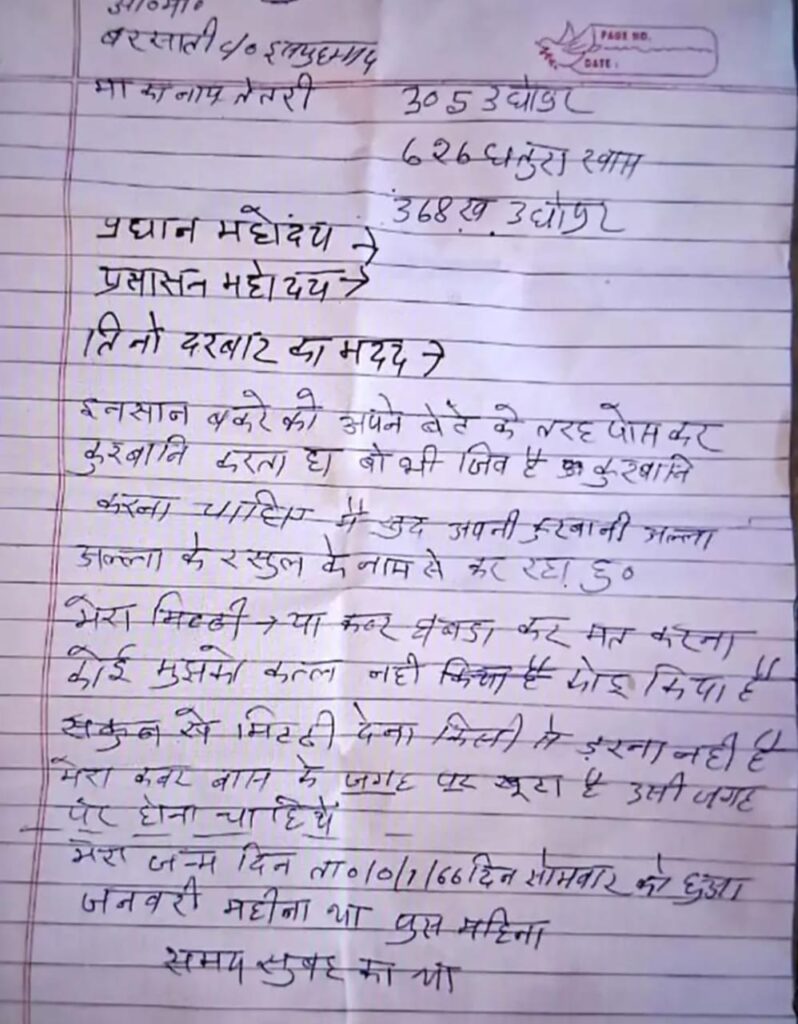 बरसाती c/o
PAGE NO.
DATE :
मा का नाम तेतरी 305
626 धतुरा खास
368ख
प्रधान महोदंय →
प्रसासन महोदंय →
तिनो दरबार का मदद →
इनसान बकरे को अपने बेटे के तरह पोस कर
कुरबानि करता हा वो भी जिव है कुरबानि
करना चाहिए मै खुद अपनी कुरबानी अल्ला
अल्ला के रसुल के नाम से कर रहा हु०
मेरा मिटटी → या कबर घबडा कर मत करना
कोई मुझको कत्ल नही किया है
सकुन से मिटटी देना किसी से ड़रना नही है
मेरा कबर बास के जगह पर खूटा है उसी जगह
पर होना चाहियें
मेरा जन्म दिन ता०/0/1/66 दिन सोमवार को हुआ
जनवरी महीना था पुस महिना
समय सुबह का था